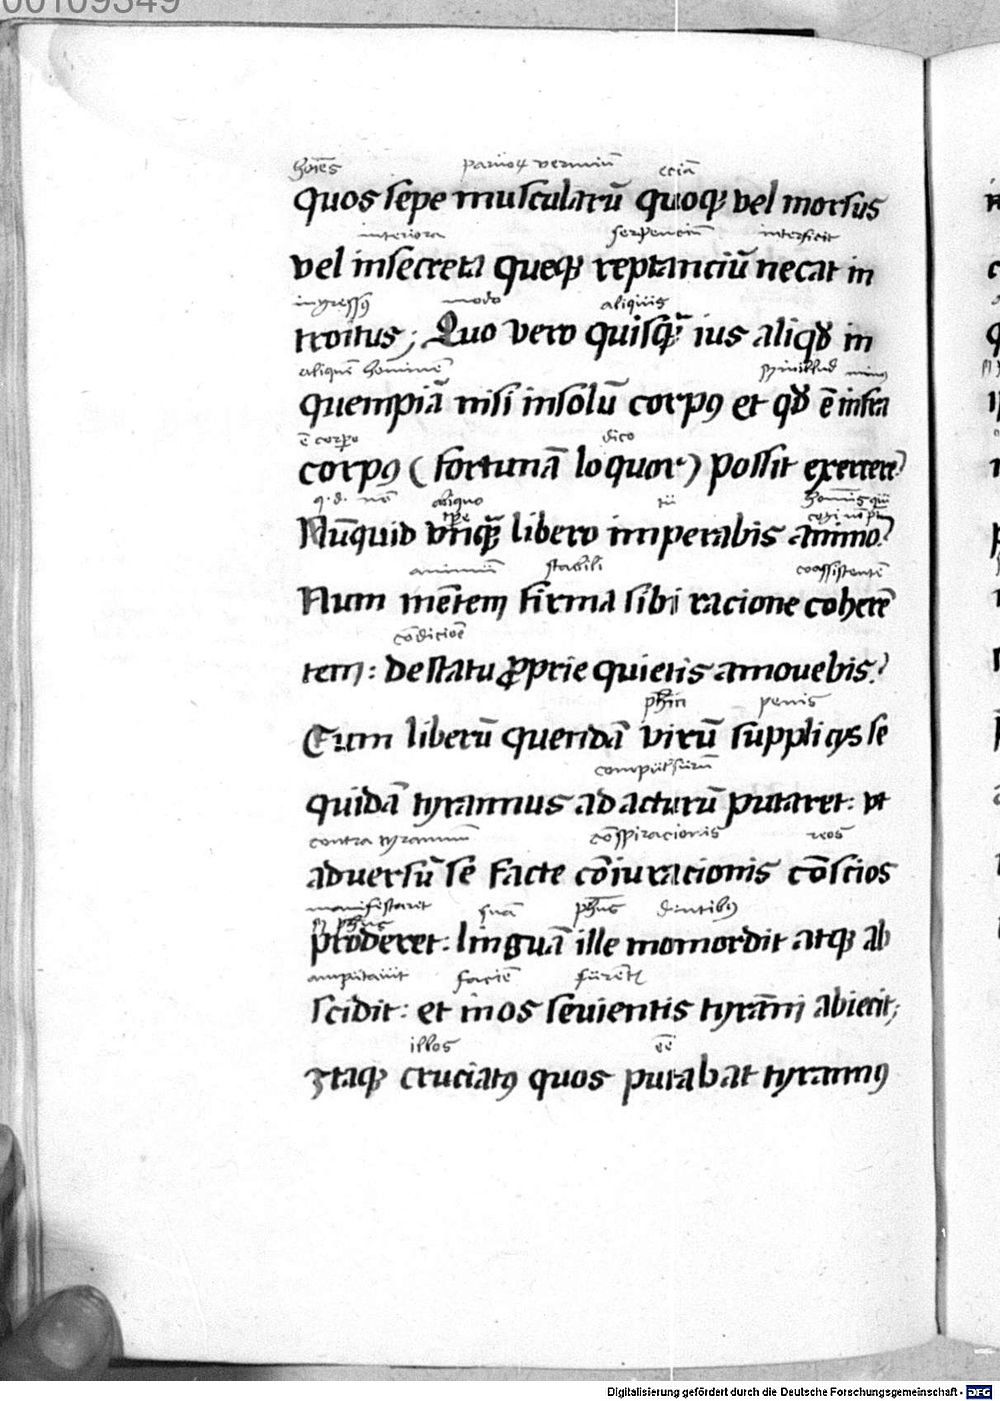 00109349
hoīes paruoꝝ vermiū eciā
quos sepe muscularū quoqꝫ vel morsus
interiora serpenciū interficit
vel insecreta queqꝫ reptanciū necat in
ingressꝰ modo aliquis
troitus; Quo vero quisqꝫ ius aliqd in
aliquē hominē minꝰ
quempiā nisi insolū corpꝰ et qd ē infra
ē corpe dico
corpꝰ (fortunā loquor) possit exercere?
q. d. nō aliquo tu
tpe
Nūquid vnqꝫ libero imperabis animo?
animū stabili coassistentē
Num mētem firma sibi racione coherē
cōdicioē
tem: de statu ꝓprie quietis amouebis?
phm penis
Cum liberū quendā virū supplicijs se
compulsurū
quidā tyrannus adacturū putaret: vt
contra tyrannū cōspiracionis reos
aduersū se facte cōiuracionis cōscios
manifestaret suā phus dentibꝰ
phus
proderet: linguā ille momordit atqꝫ ab
amputauit faciē furentis
scidit: et in os seuientis tyrāni abiecit;
illos eē
Itaqꝫ cruciatꝰ quos putabat tyrannꝰ
Digitalisierung gefördert durch die Deutsche Forschungsgemeinschaft - DFG